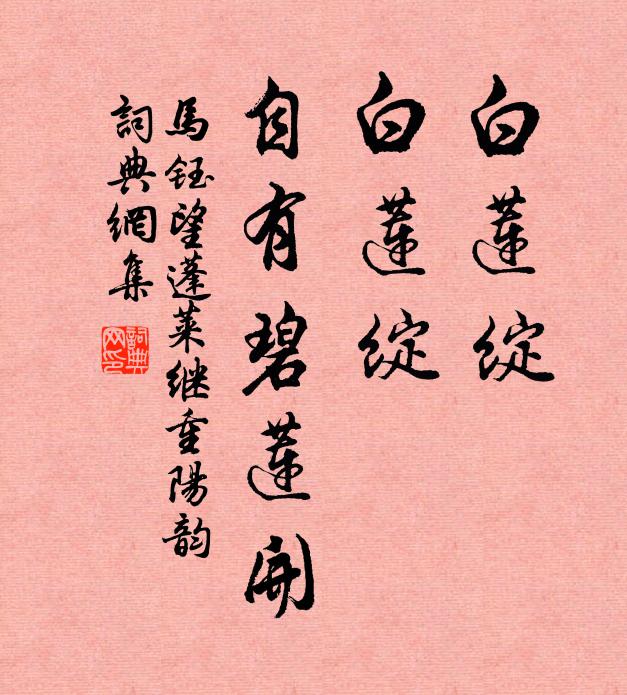 白蓮綻
白蓮綻
自有碧蓮開
馬鈺望蓬萊继重陽韵
詞典網集
詞典
网印